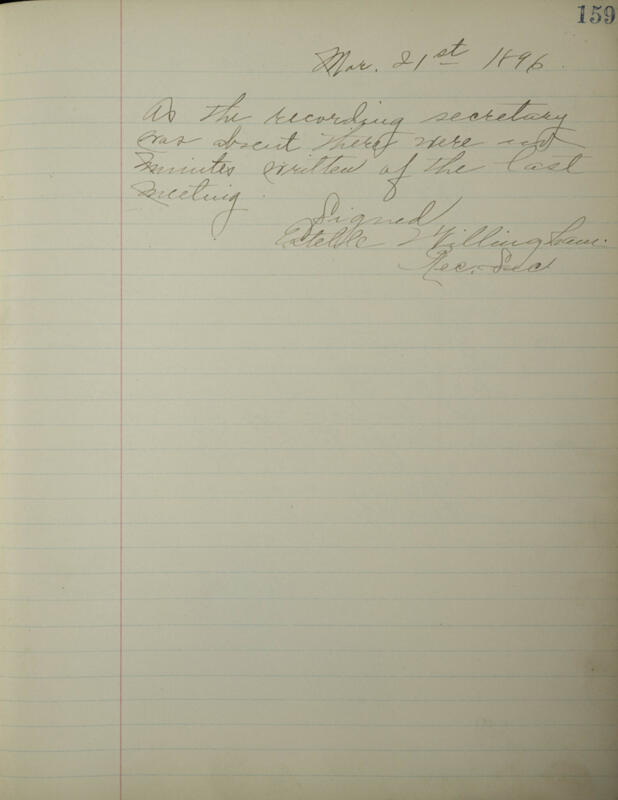 159
Mar. 21st 1896.
As the recording secretary
was absent there were no
minutes written of the last
meeting.
Signed
Estelle Willingham.
Rec. Sec